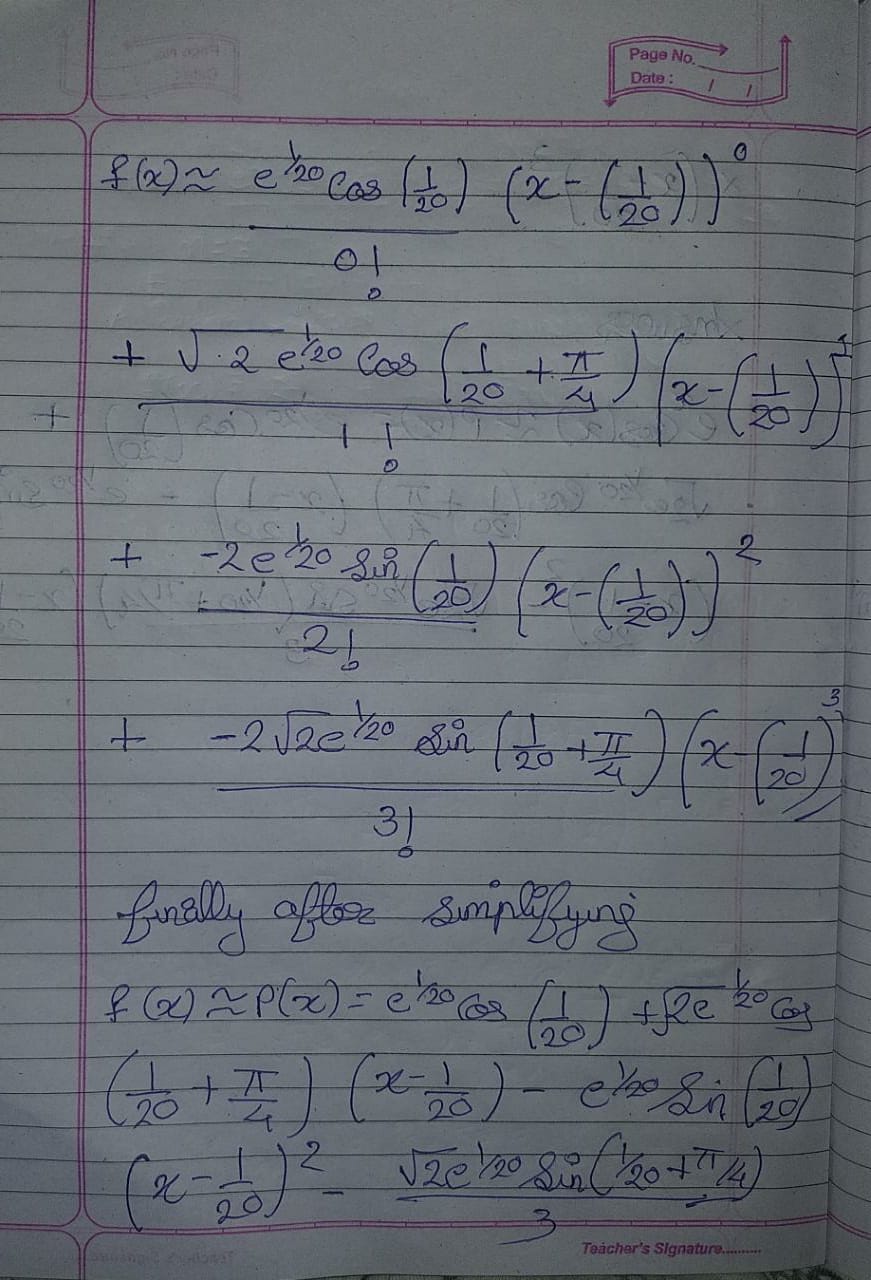 Page No.
Date : / /
f(x) ≈ e^1/20 Cos (1/20) (x - (1/20))^0
0!
+ √2 e^1/20 Cos (1/20 + π/4) (x - (1/20))^1
1!
+ -2e^1/20 Sin (1/20) (x - (1/20))^2
2!
+ -2√2e^1/20 Sin (1/20 + π/4) (x - (1/20))^3
3!
finally after simplifying
f(x) ≈ P(x) = e^1/20 Cos (1/20) + √2e^1/20 Cos
(1/20 + π/4) (x - 1/20) - e^1/20 Sin (1/20)
(x - 1/20)^2 - √2e^1/20 Sin (1/20 + π/4)
3
Teacher's Signature..........